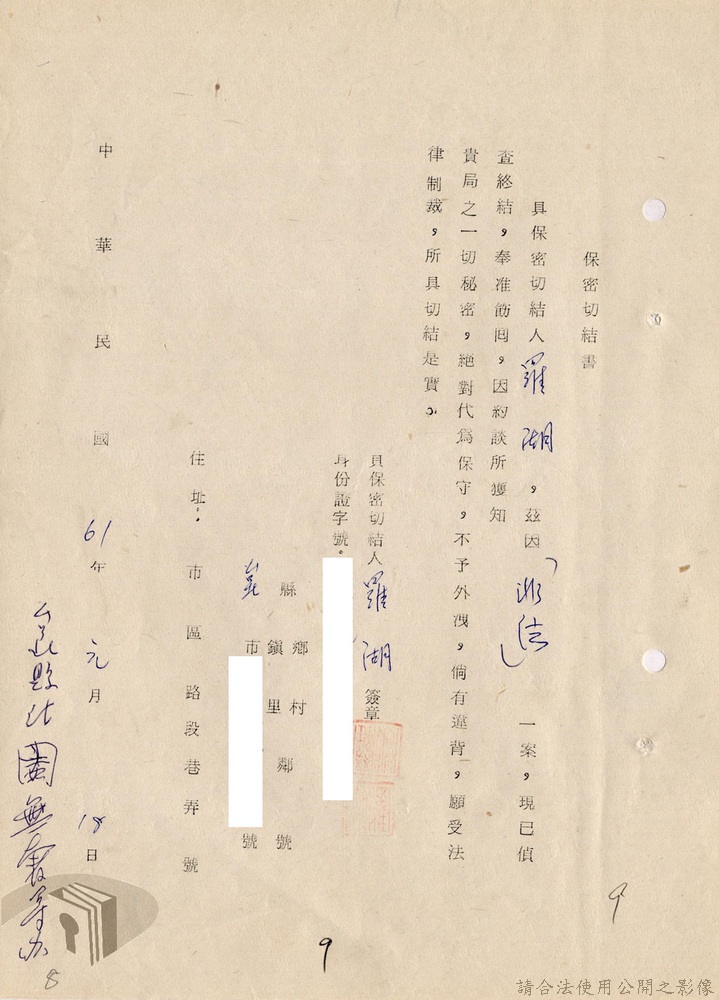 保密切結書
具保密切結人羅湖，茲因「非法」一案，現已偵
查終結，奉准飭囘，因約談所獲知
貴局之一切秘密，絕對代為保守，不予外洩，倘有違背，願受法
律制裁，所具切結是實。
具保密切結人羅湖簽章
身份證字號：
縣鄉村鄰號
市鎮里號
住址：市區路段巷弄號
中華民國61年元月18日
9
9
8
請合法使用公開之影像